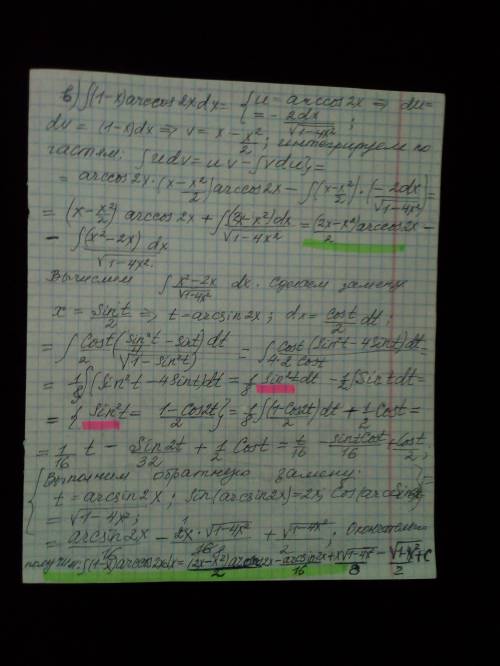 в) ∫(1-x)arccos2xdx= {u=arccos2x ⇒ du=
= -2dx/√(1-4x²);
dv = (1-x)dx ⇒ v = x - x²/2; интегрируем по
частям: ∫udv = uv - ∫vdu}=
= arccos2x·(x-x²/2)arccos2x - ∫(x-x²/2)·(-2dx/√(1-4x²))=
= (x-x²/2) arccos2x + ∫(2x-x²)dx/√(1-4x²) = (2x-x²)arccos2x/2 -
- ∫(x²-2x)dx/√(1-4x²).
Вычислим ∫(x²-2x)/√(1-4x²) dx. Сделаем замену
x = sint/2 ⇒ t=arcsin2x; dx = cost/2 dt.
= ∫Cost/2 (sin²t/4 - sint)dt/√(1-sin²t) = ∫Cost(sin²t-4sint)dt/4·2cost =
= 1/8 ∫(sin²t-4sint)dt = 1/8 ∫sin²tdt - 1/2∫Sintdt=
= {sin²t = (1-Cos2t)/2} = 1/8 ∫(1-Cos2t)/2 dt + 1/2 Cost =
= 1/16 t - Sin2t/32 + 1/2 Cost = t/16 - sintCost/16 + Cost/2;
Выполним обратную замену:
t=arcsin2x; sin(arcsin2x)=2x; Cos(arcsin2x)=
= √(1-4x²);
= arcsin2x/16 - 2x·√(1-4x²)/16 + √(1-4x²)/2; Окончательно
получим: ∫(1-x)arccos2xdx = (2x-x²)arccos2x/2 - arcsin2x/16 + x√(1-4x²)/8 - √(1-4x²)/2 + C